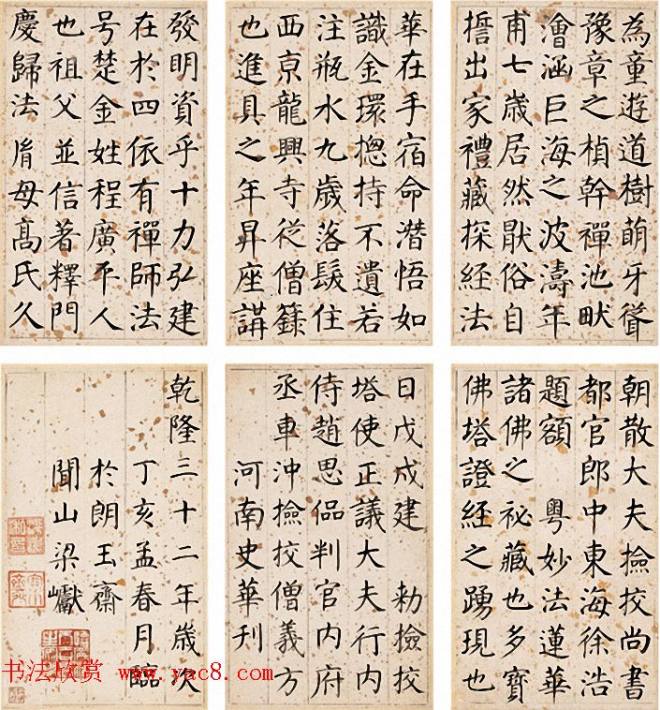 為童遊道樹萌牙聳
豫章之楨幹禪池畎
澮涵巨海之波濤年
甫七歲居然猒俗自
誓出家禮藏探經法
華在手宿命潛悟如
識金環揔持不遺若
注瓶水九歲落髮住
西京龍興寺従僧籙
也進具之年昇座講
發明資乎十力弘建
在於四依有禪師法
号楚金姓程廣平人
也祖父並信著釋門
慶歸法胤母髙氏久
朝散大夫撿挍尚書
都官郎中東海徐浩
題額 粤妙法蓮華
諸佛之祕藏也多寶
佛塔證經之踴現也
日戊戌建 勅撿挍
塔使正議大夫行内
侍趙思侃判官内府
丞車沖撿挍僧義方
河南史華刊
乾隆三十二年歲次
丁亥孟春月臨
於朗玉齋
聞山梁巘
书法欣赏 www.yac8.com